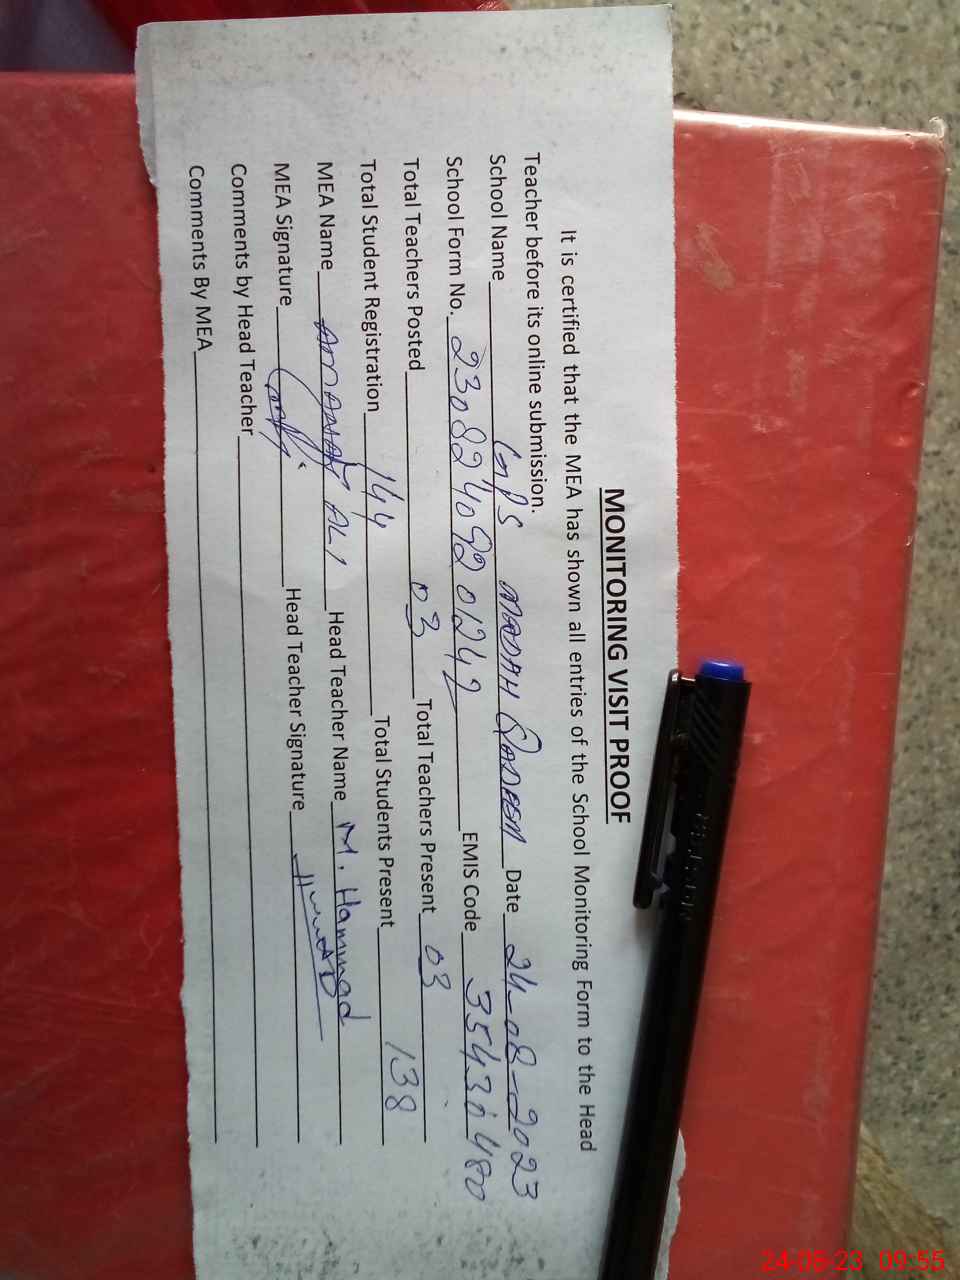 MONITORING VISIT PROOF
It is certified that the MEA has shown all entries of the School Monitoring Form to the Head
Teacher before its online submission.
School Name GPS Date 24-08-2023
School Form No. 23082409201242 EMIS Code 35430480
Total Teachers Posted 03 Total Teachers Present 03
Total Student Registration 144 Total Students Present 138
MEA Name AMANAT ALI Head Teacher Name M. Hammad
MEA Signature Head Teacher Signature
Comments by Head Teacher
Comments By MEA
24-08-23 09:55